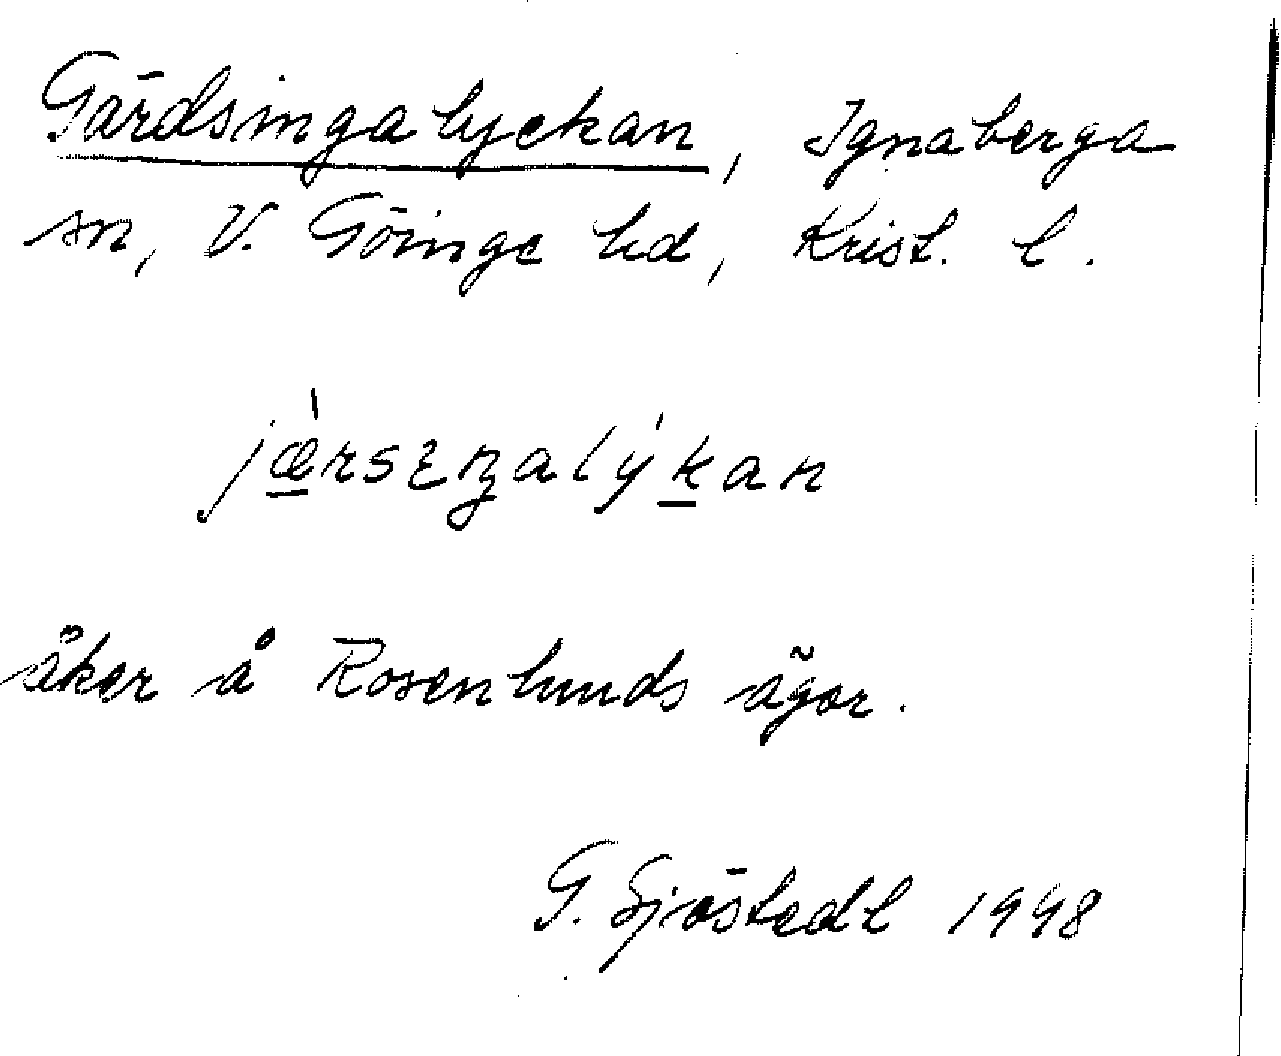 Gärdsingalyckan, Ignaberga
sn, V. Göinge hd, Krist. l.
jæ̲̀rsıŋalýk̲an
åker å Rosenlunds ägor.
G. Sjöstedt 1948